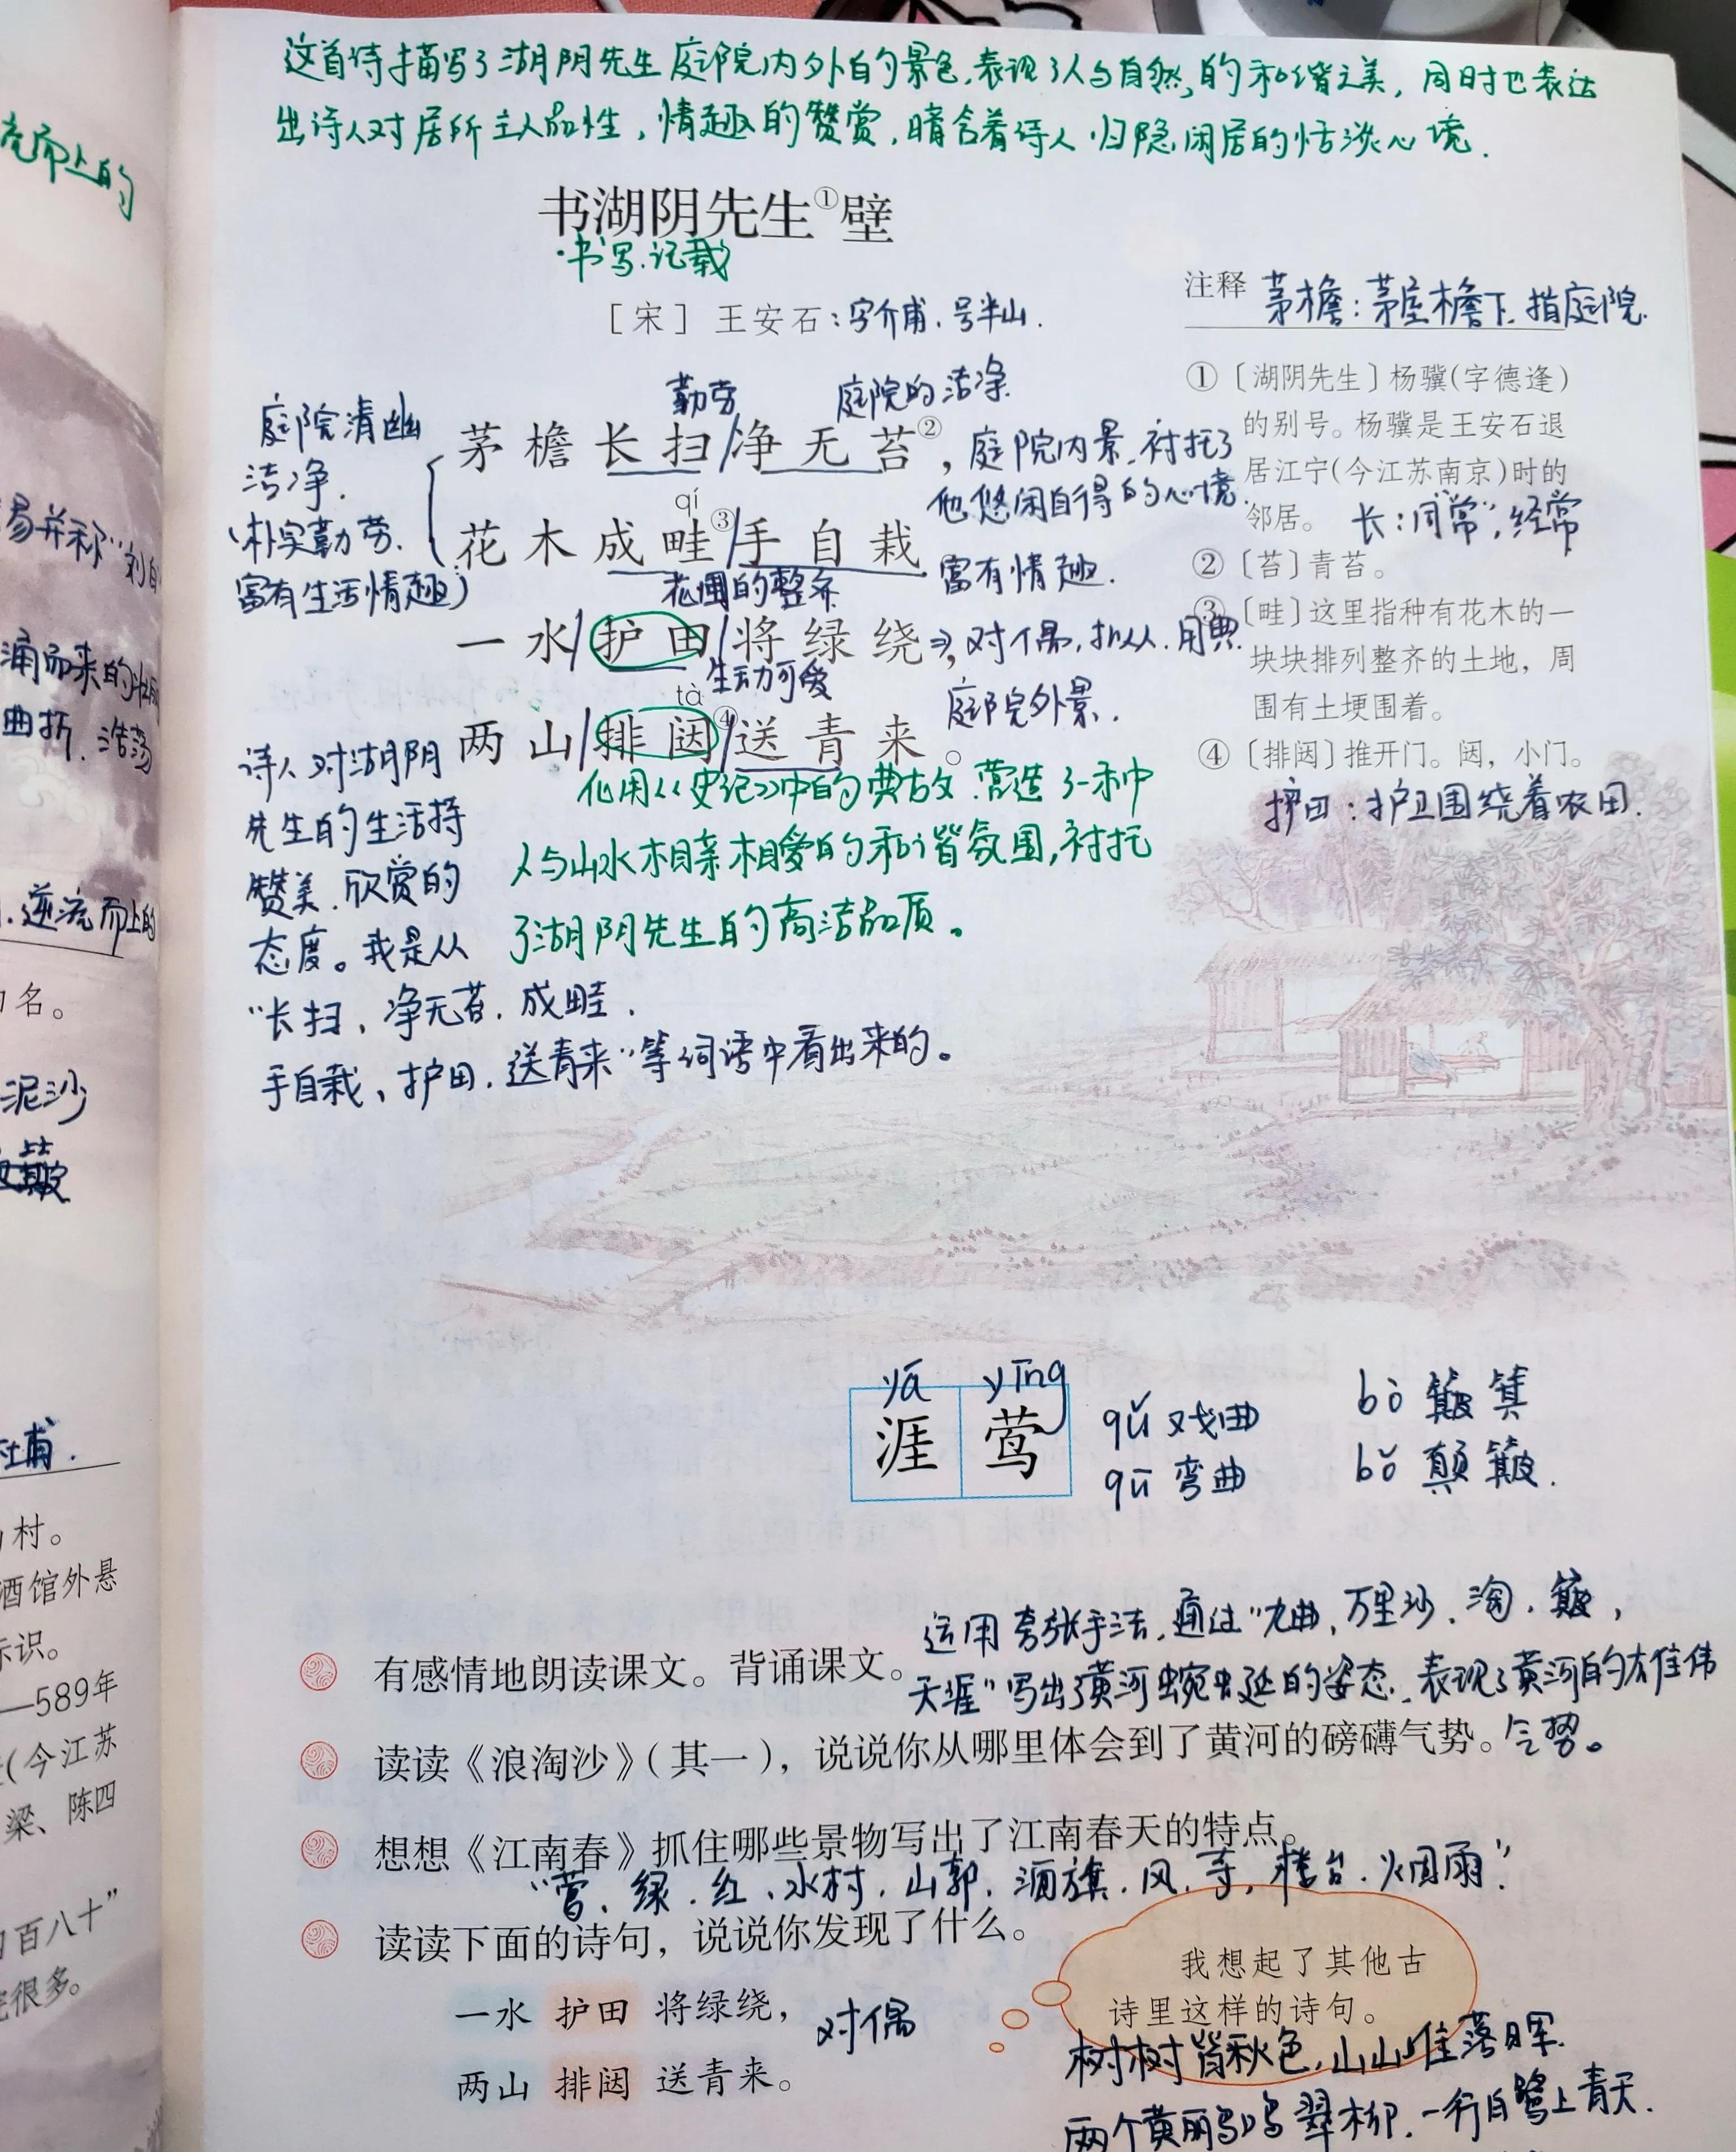 这首诗描写了湖阴先生庭院内外的景色,表现了人与自然的和谐之美,同时也表达
出诗人对居所主人品性,情趣的赞赏,暗含着诗人归隐闲居的恬淡心境.
书湖阴先生①壁
·书写.记载
[宋] 王安石:字介甫.号半山.
注释 茅檐:茅屋檐下.指庭院.
①〔湖阴先生〕杨骥(字德逢)
的别号。杨骥是王安石退
居江宁(今江苏南京)时的
邻居。 长:同“常”,经常
②〔苔〕青苔。
③〔畦〕这里指种有花木的一
块块排列整齐的土地,周
围有土埂围着。
④〔排闼〕推开门。闼,小门。
护田:护卫围绕着农田.
庭院清幽
洁净.
(朴实勤劳.
富有生活情趣)
勤劳 庭院的洁净.
茅檐长扫/净无苔②,庭院内景.衬托了
他悠闲自得的心境.
qí
花木成畦③/手自栽. 富有情趣.
花圃的整齐
一水/护田/将绿绕,⇒对偶,拟人.用典.
生动可爱
tà
庭院外景.
两山/排闼④/送青来。
化用《史记》中的典故.营造了一种
人与山水相亲相爱的和谐氛围,衬托
了湖阴先生的高洁品质。
诗人对湖阴
先生的生活持
赞美.欣赏的
态度。我是从
“长扫、净无苔.成畦.
手自栽、护田.送青来”等词语中看出来的。
yá yīng
涯 莺
qǔ 戏曲
qū 弯曲
bò 簸箕
bǒ 颠簸.
有感情地朗读课文。背诵课文。
运用夸张手法,通过“九曲,万里沙.淘.簸,
天涯”写出了黄河蜿蜒的姿态.表现了黄河的雄伟
读读《浪淘沙》(其一),说说你从哪里体会到了黄河的磅礴气势。气势。
想想《江南春》抓住哪些景物写出了江南春天的特点。
“莺、绿.红、水村.山郭.酒旗.风.寺.楼台.烟雨”.
读读下面的诗句,说说你发现了什么。
一水 护田 将绿绕,
两山 排闼 送青来。
对偶
我想起了其他古
诗里这样的诗句。
树树皆秋色,山山唯落晖.
两个黄鹂鸣翠柳.一行白鹭上青天.
流而上的
涌而来的
曲折.浩荡
逆流而上的
名。
泥沙
杜甫.
村。
酒馆外悬
示识。
—589年
(今江苏
梁、陈四
百八十”
很多。